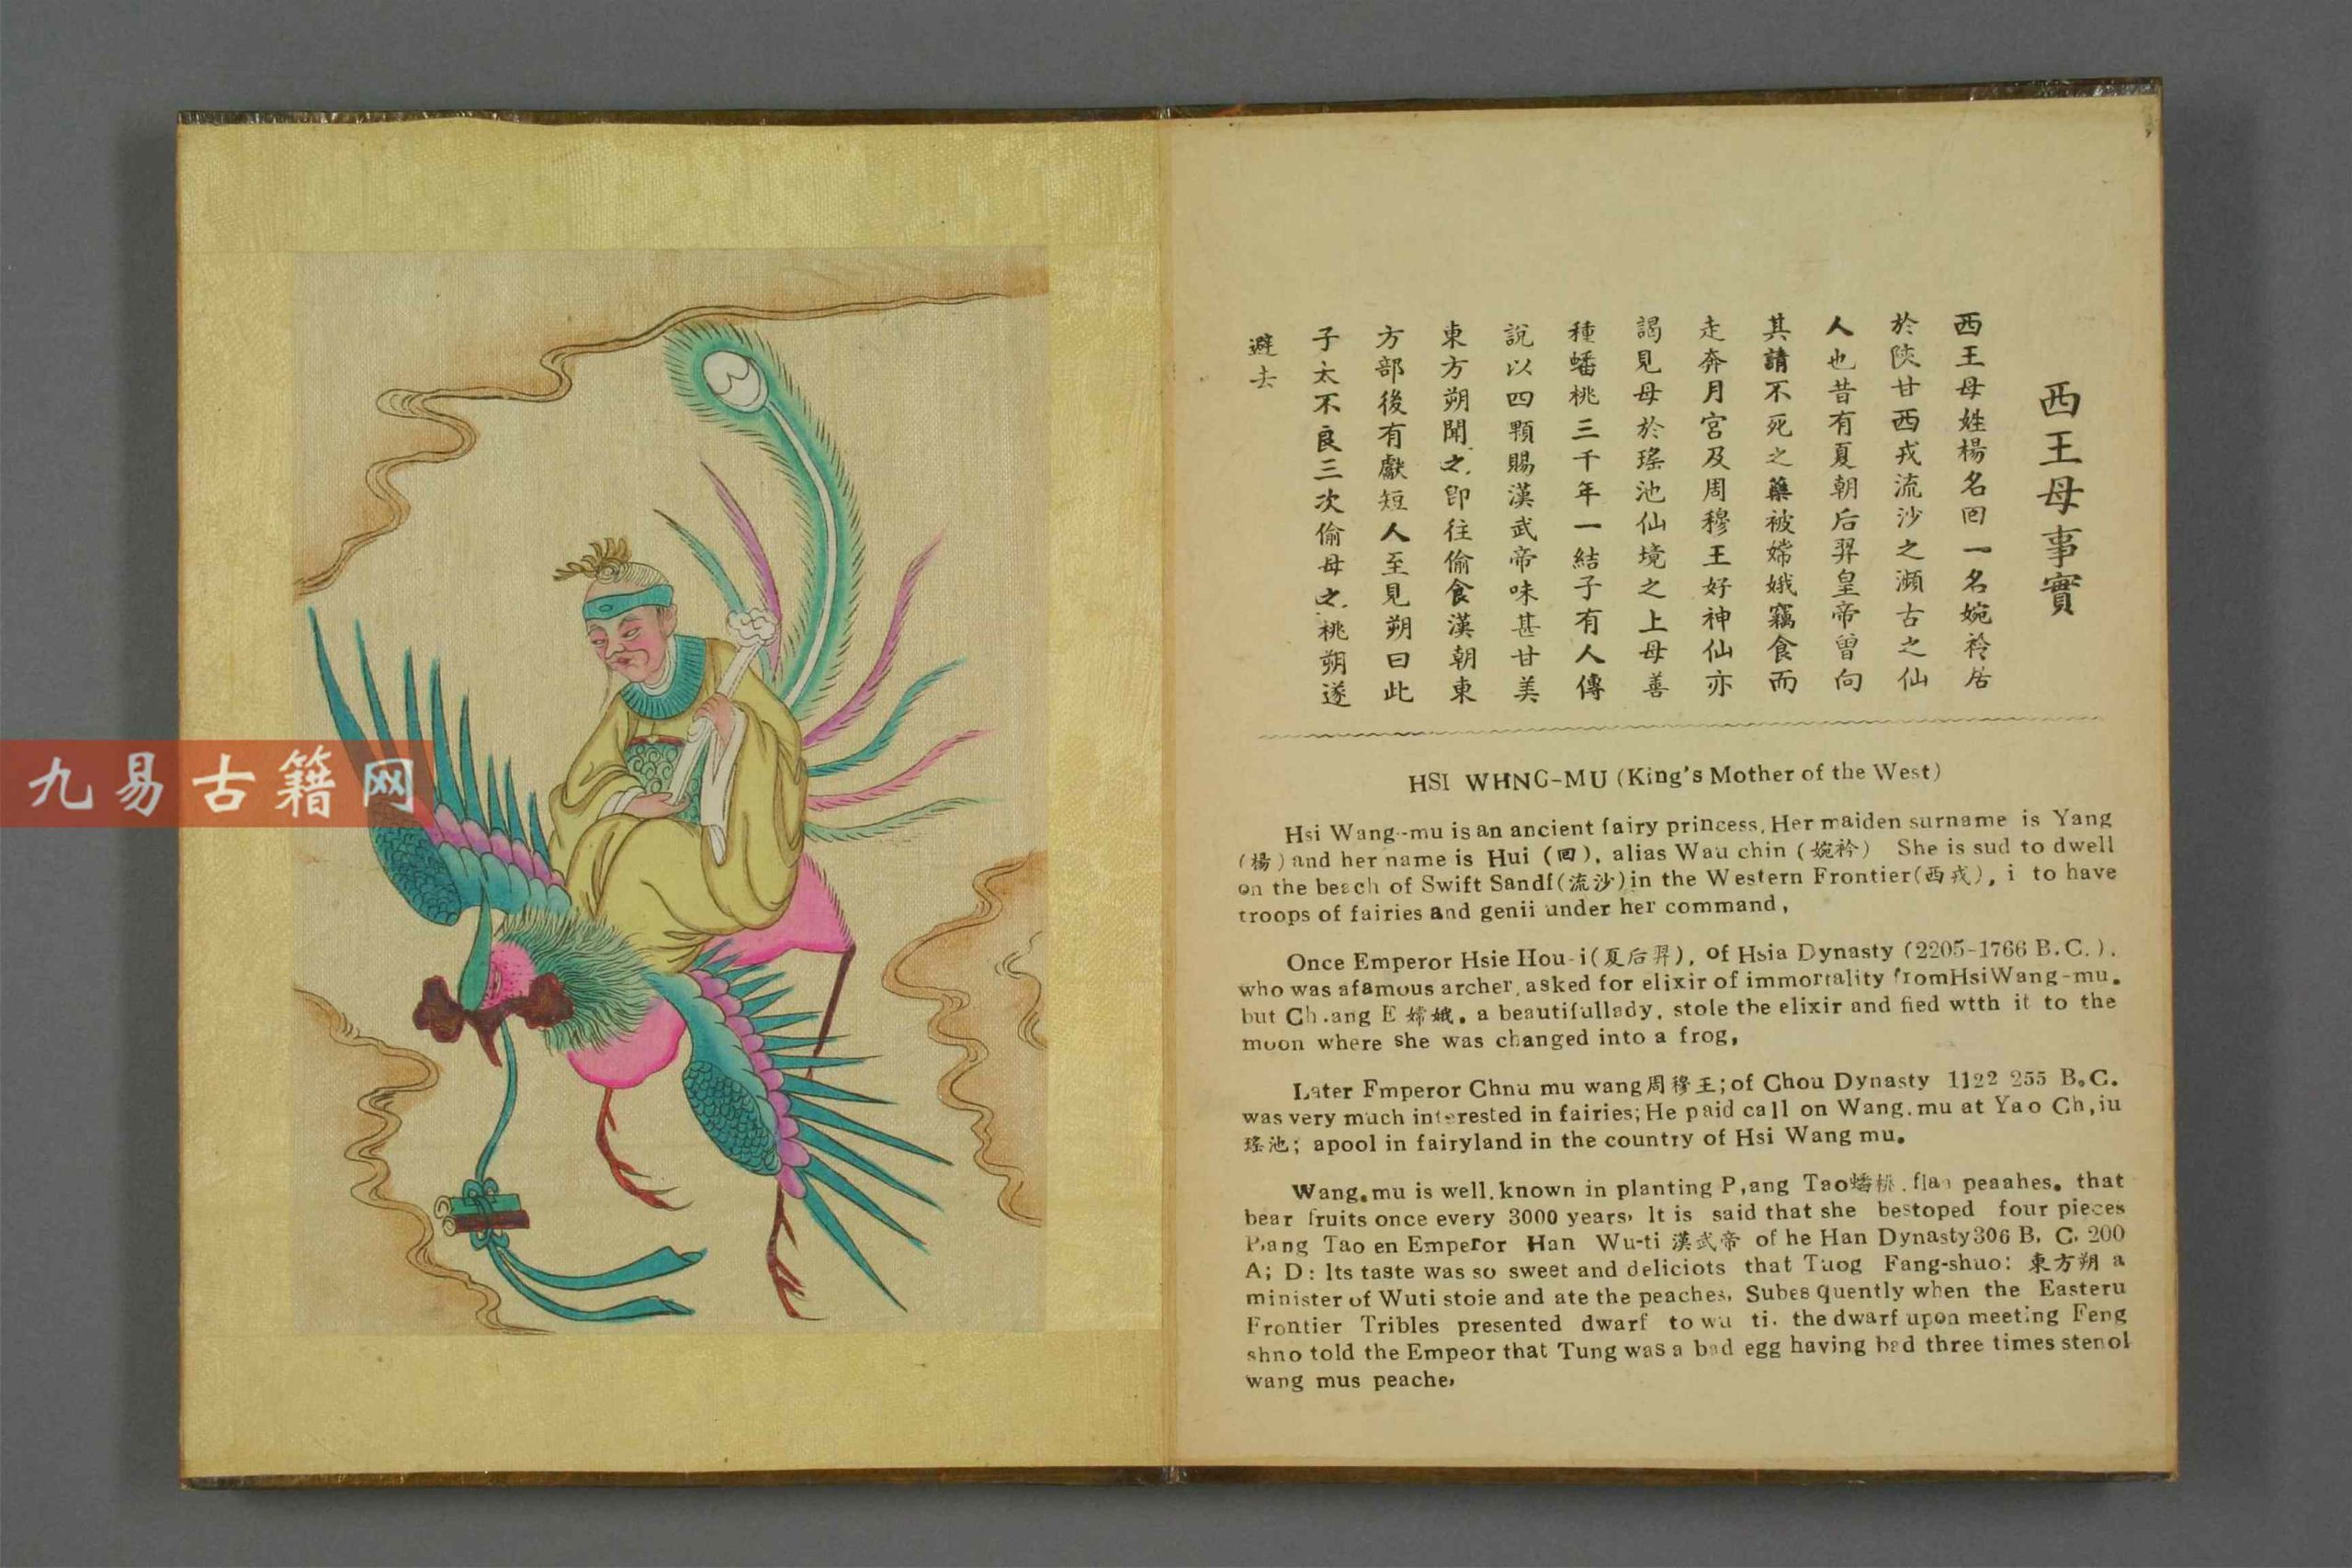 西王母事實
西王母姓楊名回一名婉衿居
於陝甘西戎流沙之瀕古之仙
人也昔有夏朝后羿皇帝曾向
其請不死之藥被嫦娥竊食而
走奔月宮及周穆王好神仙亦
謁見母於瑤池仙境之上母善
種蟠桃三千年一結子有人傳
說以四顆賜漢武帝味甚甘美
東方朔聞之即往偷食漢朝東
方部後有獻短人至見朔曰此
子太不良三次偷母之桃朔遂
避去
HSI WHNG-MU (King's Mother of the West)
Hsi Wang--mu is an ancient fairy princess. Her maiden surname is Yang
(楊) and her name is Hui (回), alias Wau chin (婉衿) She is sud to dwell
on the beach of Swift Sandf(流沙)in the Western Frontier(西戎), i to have
troops of fairies and genii under her command,
Once Emperor Hsie Hou-i(夏后羿), of Hsia Dynasty (2205-1766 B.C.).
who was afamous archer, asked for elixir of immortality fromHsiWang-mu.
but Ch.ang E 嫦娥. a beautifullady, stole the elixir and fied wtth it to the
moon where she was changed into a frog,
Later Fmperor Chnu mu wang周穆王;of Chou Dynasty 1122 255 B.C.
was very much interested in fairies; He paid call on Wang.mu at Yao Ch,iu
瑤池; apool in fairyland in the country of Hsi Wang mu.
Wang.mu is well.known in planting P,ang Tao蟠桃. peaahes. that
bear fruits once every 3000 years, It is said that she bestoped four pieces
P,ang Tao en Emperor Han Wu-ti 漢武帝 of he Han Dynasty306 B. C. 200
A; D: Its taste was so sweet and deliciots that Tuog Fang-shuo: 東方朔 a
minister of Wuti stoie and ate the peaches. Subes quently when the Easteru
Frontier Tribles presented dwarf to wu ti. the dwarf upon meeting Feng
shno told the Empeor that Tung was a bad egg having had three times stenol
wang mus peache,
九易古籍网